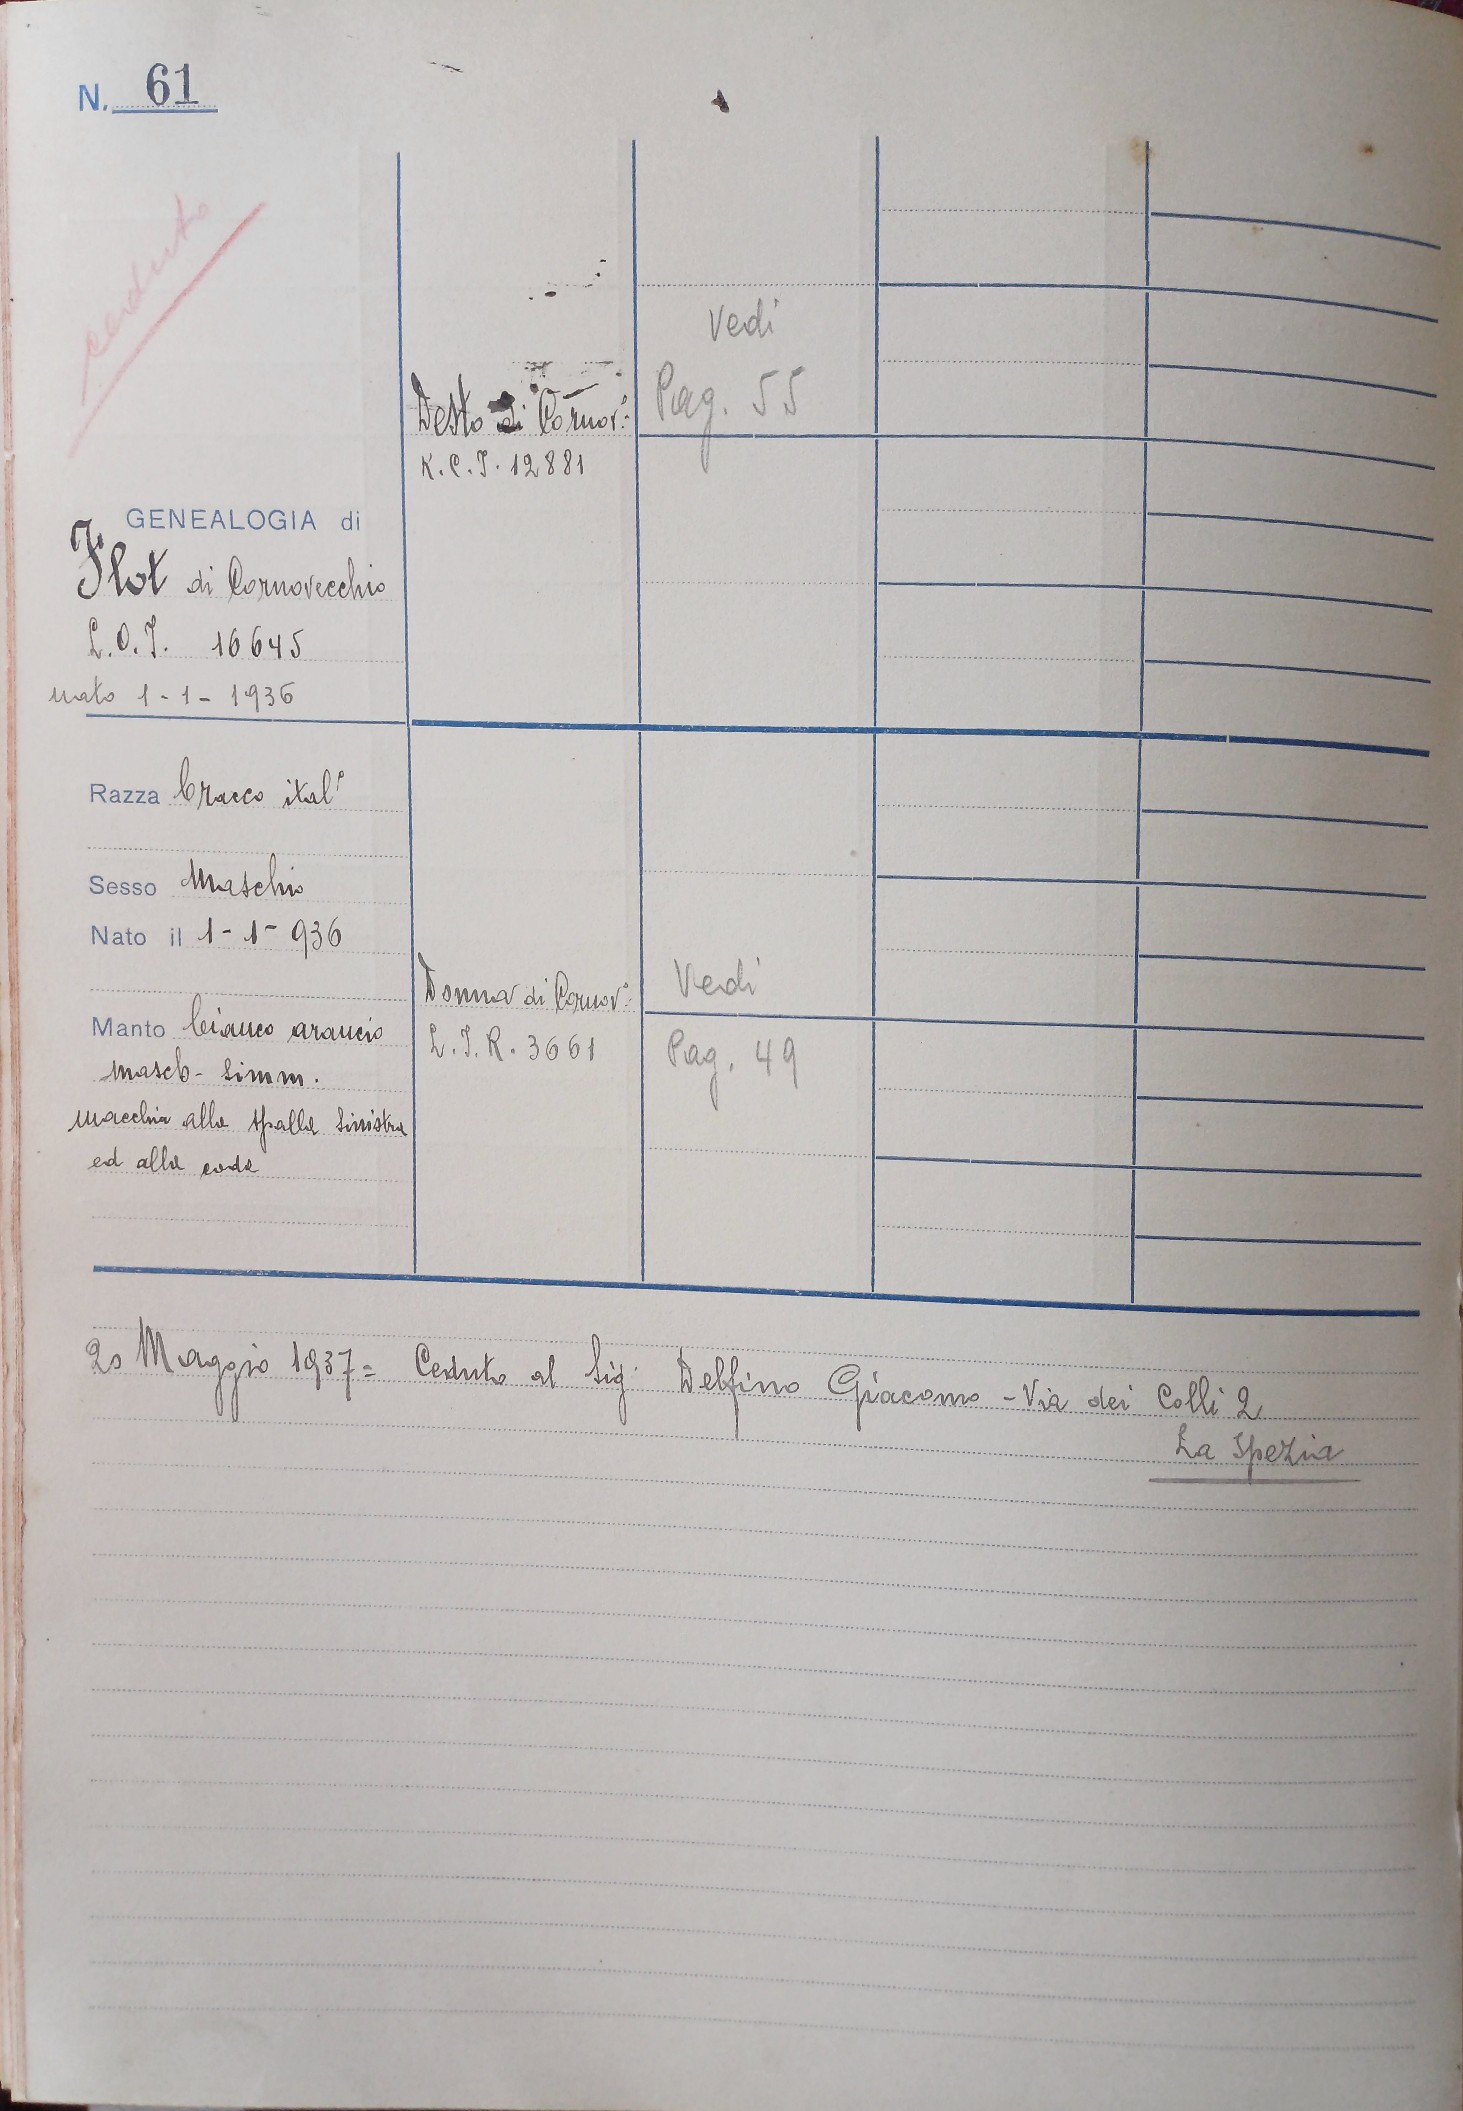 N. 61
ceduto
Vedi
Pag. 55
Desto di Cornov.º
K.C.I. 12881
GENEALOGIA di
Flot di Cornovecchio
L.O.I. 16645
nato 1-1-1936
Razza bracco ital.º
Sesso Maschio
Nato il 1-1-936
Donna di Cornov.º
L.I.R. 3661
Vedi
Pag. 49
Manto bianco arancio
masch- simm.
macchia alla spalla sinistra
ed alla coda
20 Maggio 1937= Ceduto al Sig. Delfino Giacomo - Via dei Colli 2
La Spezia